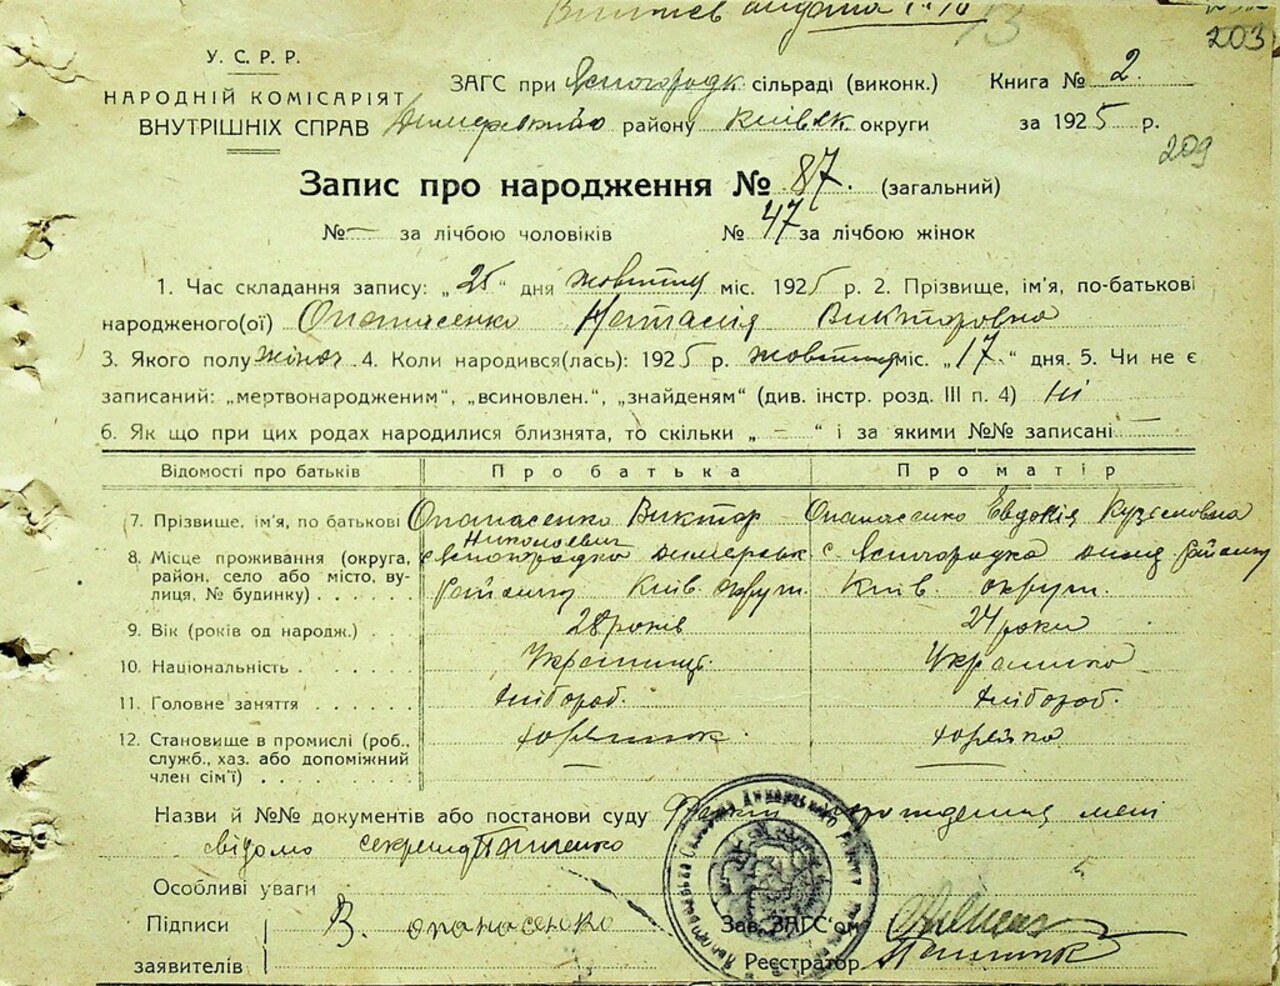 203
У. С. Р. Р.
НАРОДНІЙ КОМІСАРІЯТ
ВНУТРІШНІХ СПРАВ
ЗАГС при Ясногородк сільраді (виконк.) Книга № 2.
Димерського району Київськ. округи за 1925 р.
209
Запис про народження № 87. (загальний)
№ — за лічбою чоловіків № 47 за лічбою жінок
1. Час складання запису: „25" дня жовтня міс. 1925 р. 2. Прізвище, ім'я, по-батькові
народженого(ої) Опанасенко Наталія Викторовна
3. Якого полу жіноч. 4. Коли народився(лась): 1925 р. жовтня міс. „17." дня. 5. Чи не є
записаний: „мертвонародженим", „всиновлен.", „знайденям" (див. інстр. розд. III п. 4) Ні
6. Як що при цих родах народилися близнята, то скільки „ — " і за якими №№ записані —
Відомості про батьків Про батька Про матір
7. Прізвище, ім'я, по батькові Опанасенко Виктор Николаевич Опанасенко Евдокія Кузьмовна
8. Місце проживання (округа, район, село або місто, вулиця, № будинку) с. Ясногородка Димерськ с. Ясногородка Димер. району
району Київ. округи. Київ. округи.
9. Вік (років од народж.) 28 років 24 роки
10. Національність Українець. Українка
11. Головне заняття хлібороб. хлібороб.
12. Становище в промислі (роб., служб., хаз. або допоміжний член сім'ї)
Назви й №№ документів або постанови суду Факт народження мені
свідомо секретар Панченко
Особливі уваги
Підписи
заявителів
В. опанасенко
Зав. ЗАГС'ом
Реєстратор